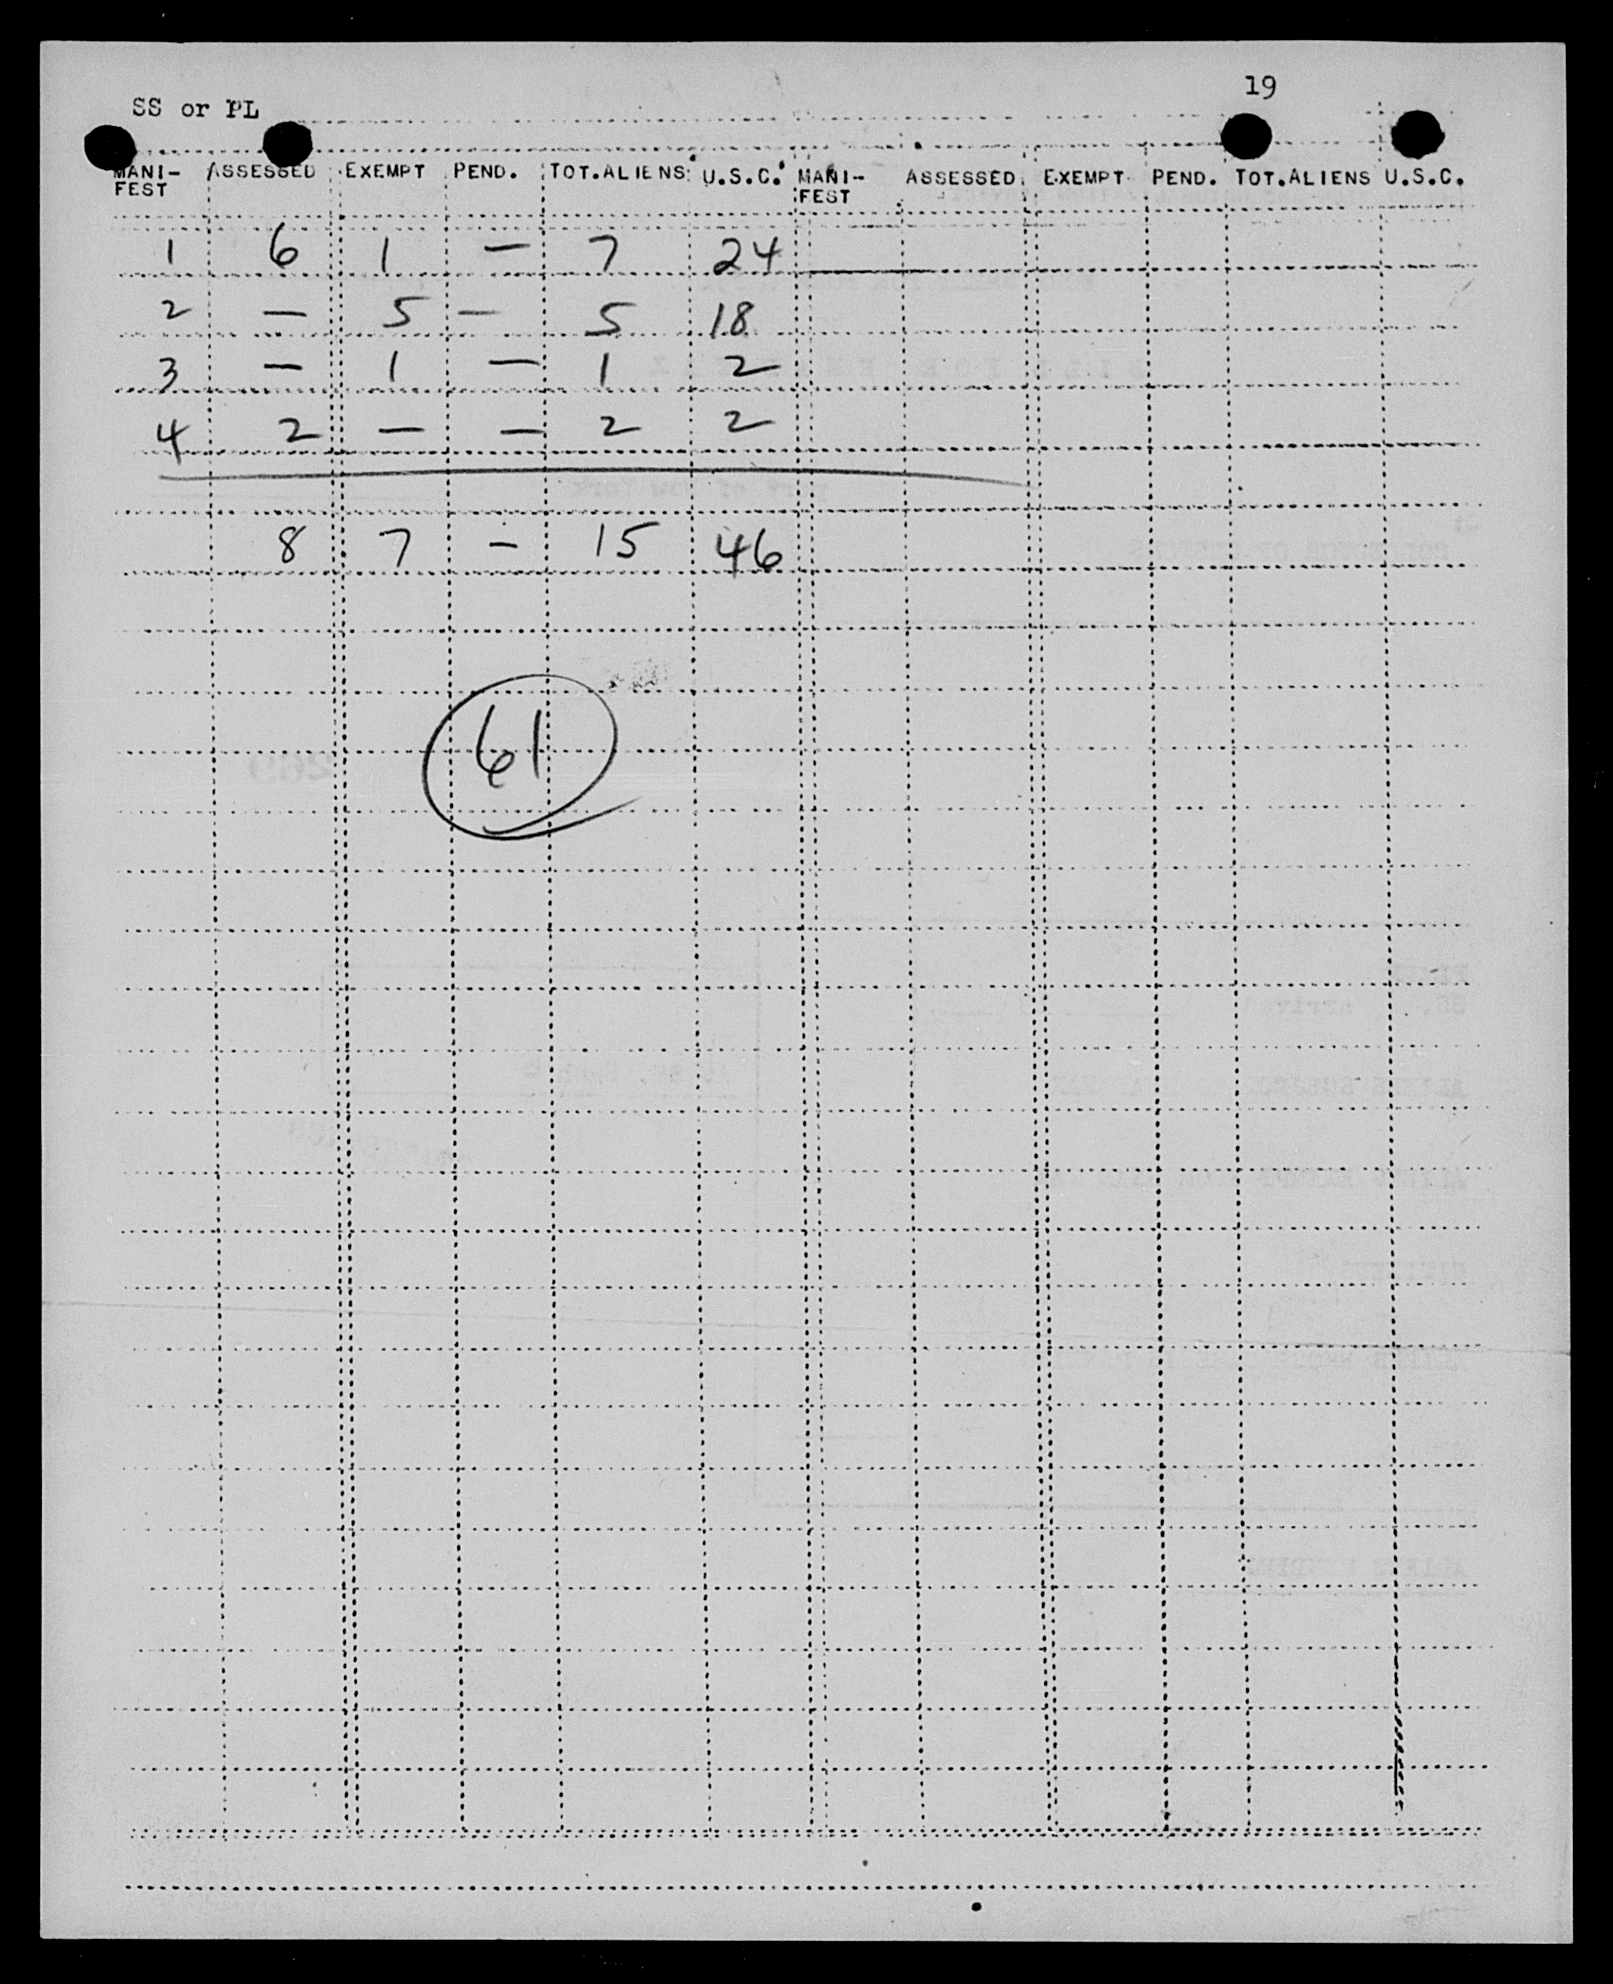 19
SS or PL
MANI-FEST ASSESSED EXEMPT PEND. TOT.ALIENS U.S.C. MANI-FEST ASSESSED EXEMPT PEND. TOT.ALIENS U.S.C.
1 6 1 — 7 24
2 — 5 — 5 18
3 — 1 — 1 2
4 2 — — 2 2
8 7 — 15 46
61